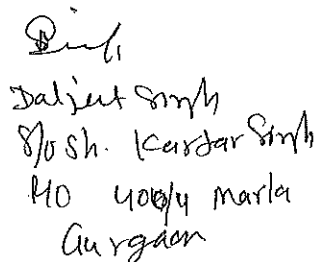 Daljeet Singh
S/o Sh. Kartar Singh
R/o 400/4 Marla
Gurgaon